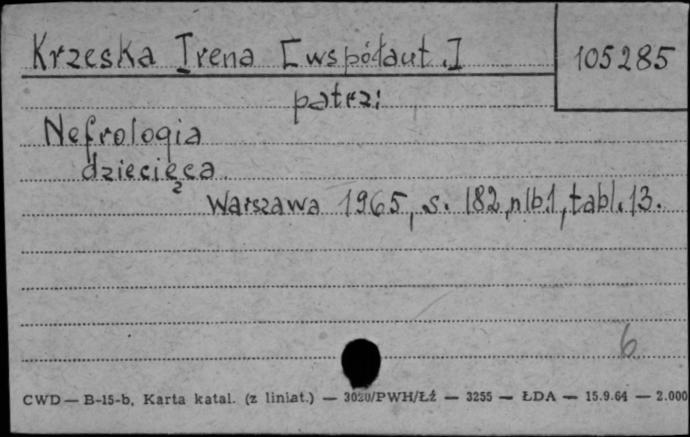 Krzeska Irena [współaut.]
105285
patrz:
Nefrologia
dziecięca
Warszawa 1965, s. 182, nlb.1, tabl. 13.
6
CWD — B-15-b, Karta katal. (z liniat.) — 3020/PWH/Łź — 3255 — ŁDA — 15.9.64 — 2.000